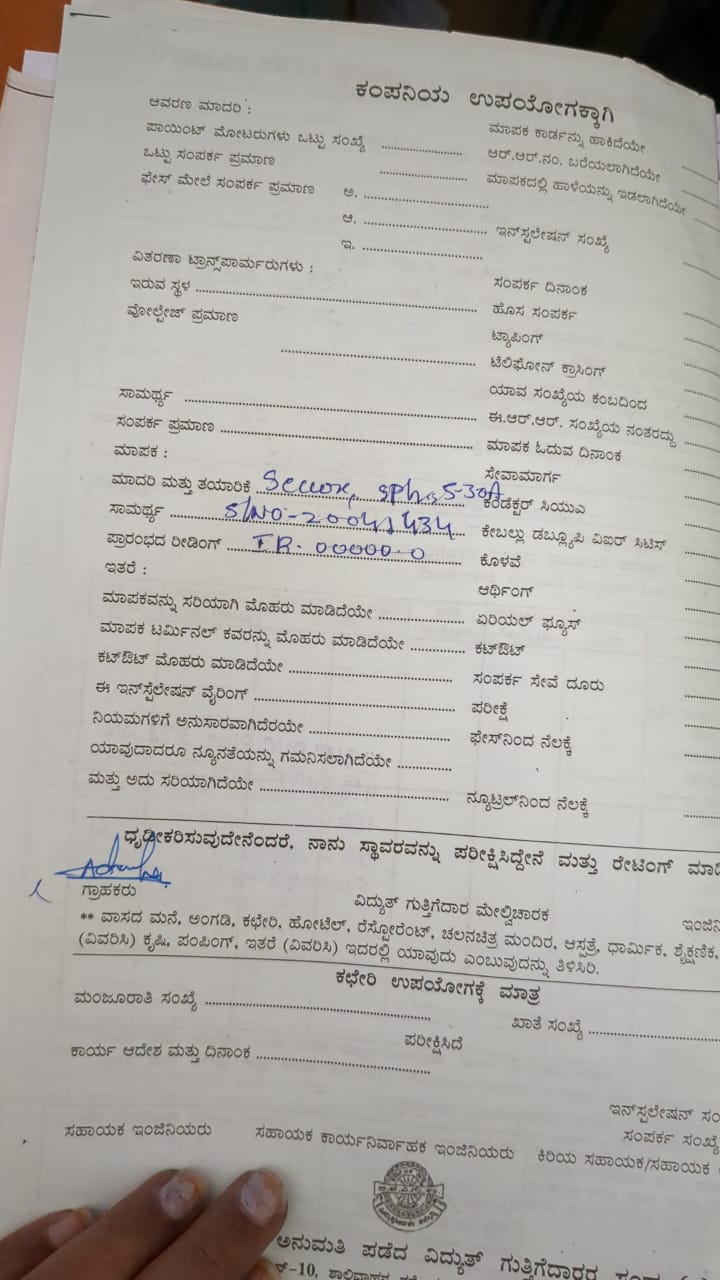 ಕಂಪನಿಯ ಉಪಯೋಗಕ್ಕಾಗಿ
ಆವರಣ ಮಾದರಿ :
ಪಾಯಿಂಟ್ ಮೋಟರುಗಳು ಒಟ್ಟು ಸಂಖ್ಯೆ ............ ಮಾಪಕ ಕಾರ್ಡನ್ನು ಹಾಕಿದೆಯೇ
ಒಟ್ಟು ಸಂಪರ್ಕ ಪ್ರಮಾಣ ............ ಆರ್.ಆರ್.ನಂ. ಬರೆಯಲಾಗಿದೆಯೇ
ಫೇಸ್ ಮೇಲೆ ಸಂಪರ್ಕ ಪ್ರಮಾಣ ಅ. ............ ಮಾಪಕದಲ್ಲಿ ಹಾಳೆಯನ್ನು ಇಡಲಾಗಿದೆಯೇ
ಆ. ............ ಇನ್‌ಸ್ಟಲೇಷನ್ ಸಂಖ್ಯೆ
ಇ. ............
ವಿತರಣಾ ಟ್ರಾನ್ಸ್‌ಪಾರ್ಮರುಗಳು :
ಇರುವ ಸ್ಥಳ ............ ಸಂಪರ್ಕ ದಿನಾಂಕ
ವೋಲ್ಟೇಜ್ ಪ್ರಮಾಣ ಹೊಸ ಸಂಪರ್ಕ
ಟ್ಯಾಪಿಂಗ್
............ ಟೆಲಿಫೋನ್ ಕ್ರಾಸಿಂಗ್
ಯಾವ ಸಂಖ್ಯೆಯ ಕಂಬದಿಂದ
ಸಾಮರ್ಥ್ಯ ............ ಈ.ಆರ್.ಆರ್. ಸಂಖ್ಯೆಯ ನಂತರದ್ದು
ಸಂಪರ್ಕ ಪ್ರಮಾಣ ............ ಮಾಪಕ ಓದುವ ದಿನಾಂಕ
ಮಾಪಕ : ಸೇವಾಮಾರ್ಗ
ಮಾದರಿ ಮತ್ತು ತಯಾರಿಕೆ Secure, sph, 5-30A ಕಂಡಕ್ಟರ್ ಸಿಯುಎ
ಸಾಮರ್ಥ್ಯ S/NO-20041434 ಕೇಬಲ್ಲು ಡಬ್ಲ್ಯೂಪಿ ವಿಐಆರ್ ಸಿಟಿಸ್
ಪ್ರಾರಂಭದ ರೀಡಿಂಗ್ IR. 00000.0 ಕೊಳವೆ
ಇತರೆ : ಆರ್ಥಿಂಗ್
ಮಾಪಕವನ್ನು ಸರಿಯಾಗಿ ಮೊಹರು ಮಾಡಿದೆಯೇ ............ ಏರಿಯಲ್ ಫ್ಯೂಸ್
ಮಾಪಕ ಟರ್ಮಿನಲ್ ಕವರನ್ನು ಮೊಹರು ಮಾಡಿದೆಯೇ ............ ಕಟ್‌ಔಟ್
ಕಟ್‌ಔಟ್ ಮೊಹರು ಮಾಡಿದೆಯೇ ............ ಸಂಪರ್ಕ ಸೇವೆ ದೂರು
ಈ ಇನ್‌ಸ್ಟೆಲೇಷನ್ ವೈರಿಂಗ್ ............ ಪರೀಕ್ಷೆ
ನಿಯಮಗಳಿಗೆ ಅನುಸಾರವಾಗಿದೆರಯೇ ............ ಫೇಸ್‌ನಿಂದ ನೆಲಕ್ಕೆ
ಯಾವುದಾದರೂ ನ್ಯೂನತೆಯನ್ನು ಗಮನಿಸಲಾಗಿದೆಯೇ ............
ಮತ್ತು ಅದು ಸರಿಯಾಗಿದೆಯೇ ............ ನ್ಯೂಟ್ರಲ್‌ನಿಂದ ನೆಲಕ್ಕೆ
ಧೃಡೀಕರಿಸುವುದೇನೆಂದರೆ, ನಾನು ಸ್ಥಾವರವನ್ನು ಪರೀಕ್ಷಿಸಿದ್ದೇನೆ ಮತ್ತು ರೇಟಿಂಗ್
ಗ್ರಾಹಕರು ವಿದ್ಯುತ್ ಗುತ್ತಿಗೆದಾರ ಮೇಲ್ವಿಚಾರಕ
** ವಾಸದ ಮನೆ, ಅಂಗಡಿ, ಕಛೇರಿ, ಹೋಟೆಲ್, ರೆಸ್ಟೋರೆಂಟ್, ಚಲನಚಿತ್ರ ಮಂದಿರ, ಆಸ್ಪತ್ರೆ, ಧಾರ್ಮಿಕ, ಶೈಕ್ಷಣಿಕ,
(ವಿವರಿಸಿ) ಕೃಷಿ, ಪಂಪಿಂಗ್, ಇತರೆ (ವಿವರಿಸಿ) ಇದರಲ್ಲಿ ಯಾವುದು ಎಂಬುವುದನ್ನು ತಿಳಿಸಿರಿ.
ಕಛೇರಿ ಉಪಯೋಗಕ್ಕೆ ಮಾತ್ರ
ಮಂಜೂರಾತಿ ಸಂಖ್ಯೆ ............ ಖಾತೆ ಸಂಖ್ಯೆ ............
ಪರೀಕ್ಷಿಸಿದೆ
ಕಾರ್ಯ ಆದೇಶ ಮತ್ತು ದಿನಾಂಕ ............
ಇನ್‌ಸ್ಟಲೇಷನ್
ಸಂಪರ್ಕ ಸಂಖ್ಯೆ
ಸಹಾಯಕ ಇಂಜಿನಿಯರು ಸಹಾಯಕ ಕಾರ್ಯನಿರ್ವಾಹಕ ಇಂಜಿನಿಯರು ಕಿರಿಯ ಸಹಾಯಕ/ಸಹಾಯಕ
ಅನುಮತಿ ಪಡೆದ ವಿದ್ಯುತ್ ಗುತ್ತಿಗೆದಾರರ